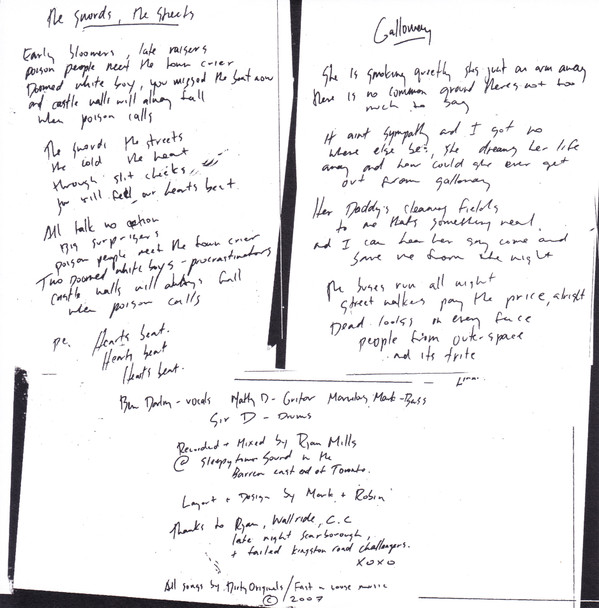 The Swords, The Streets
Early bloomers, late raisers
poison people need the town crier
Doomed white boy, you missed the boat now
and castle walls will alway fall
when poison calls
The swords the streets
the cold the heat
through slit cheeks
you will feel our hearts beat
All talk no action
Big surprisers
poison people meet the town crier
Two Doomed white boys - procrastinators
castle walls will always fall
when poison calls
Hearts beat.
Hearts beat
Hearts beat.
Galloway
She is smoking quietly shes just an arm away
there is no common ground theres not too
much to say
It aint sympathy and I got no
where else be, she dreams her life
away and how could she ever get
out from galloway
Her Daddy's cleaning fields
to me thats something real
and I can hear her say come and
save me from the night
The buses run all night
street walkers pay the price, alright
Dead looks on every face
people from outer space
and its trite
Ben - vocals Math D - Guitar Marvelous Mark - Bass
Sir D - Drums
Recorded + Mixed by Ryan Mills
@ Sleepytown Sound in the
Barren east end of Toronto.
Layout + Design by Mark + Robin
Thanks to Ryan, Wallride, C.C
late night Scarborough,
+ failed kingston road challengers.
xoxo
All songs by Dirty Originals / Fast - loose music
© 2007